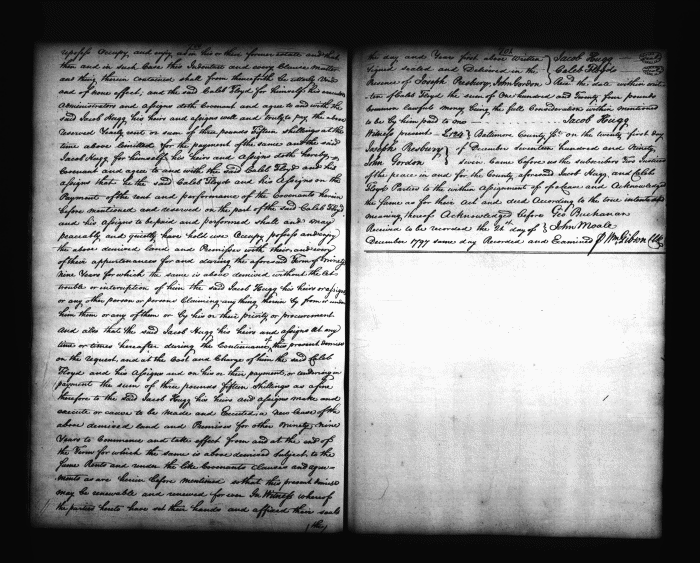 reposess Occupy, and enjoy, as in his or their former estate and that
then and in such Case this Indenture and every Clause matter
and thing therein contained shall from thenceforth be utterly Void
and of none effect, and the said Caleb Floyd for himself, his executors
Administrators and assigns doth Covenant and agree to and with the
said Jacob Hugg his heirs and assigns well and truly to pay the above
reserved Yearly rent or sum of three pounds fifteen shillings at the
time above limitted for the payment of the same and the said
Jacob Hugg for himself, his heirs and assigns doth hereby
Covenant and agree to and with the said Caleb Floyd and his
assigns that he the said Caleb Floyd and his Assigns on the
Payment of the rent and performance of the Covenants herein
before mentioned and reserved on the part of the said Caleb Floyd
and his assigns to be paid and performed shall and may
peaceably and quietly have hold use Occupy possess and enjoy
the above demised land and Premises with their and every
of their appurtenances for and during the aforesaid Term of Ninety
nine Years for which the same is above demised without the let
trouble or interruption of him the said Jacob Hugg his heirs or assigns
or any other person or persons Claiming any thing therein by from or under
him them or any of them or by his or their privity or procurement
and also that the said Jacob Hugg his heirs and assigns at any
time or times hereafter during the Continuance of this present demise
on the request, and at the Cost and Charge of him the said Caleb
Floyd and his Assigns and on his or their payment, or tendering in
payment the sum of three pounds fifteen shillings as a fine
therefore to the said Jacob Hugg his heirs and assigns make and
execute or cause to be made and Executed, a new lease of the
above demised land and Premises for other Ninety nine
Years to Commence and take effect from and at the end of
the Term for which the same is above demised Subject to the
same Rents and under the like Covenants Clauses and agree-
ments as are herein before mentioned so that this present demise
may be renewable and renewed for ever. In Witness whereof
the parties hereto have set their hands and affixed their seals
the
the day and Year first above Written } Jacob Hugg
Signed sealed and Delivered in the } Caleb Floyd
Presence of Joseph Presbury, John Gordon } Recd. the date within writ-
ten of Caleb Floyd the sum of One hundred and Twenty four pounds
Common lawful money being the full Consideration within mentioned
to be by him paid to me Jacob Hugg
Witness present
Joseph Presbury
John Gordon
Baltimore County Sc. on the twenty first day
of December seventeen hundred and Ninety
seven Came before us the subscribers Two Justices
of the peace in and for the County aforesaid Jacob Hugg and Caleb
Floyd Parties to the within Assignment of a Lease and Acknowledged
the same as for their Act and deed According to the true intent and
meaning hereof Acknowledged before Geo Buchanan
Received to be recorded the day of } John Moale
December 1797 same day Recorded and Examined Wm Gibson Clk